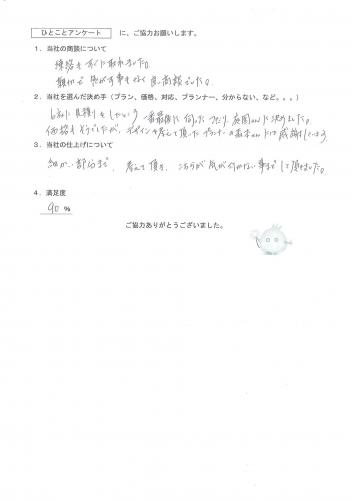 ひとことアンケート に、ご協力お願いします。
1．当社の商談について
連絡もすぐに取れました。
無理で 急がす事もなく 良い商談でした。
2．当社を選んだ決め手（プラン、価格、対応、プランナー、分からない、など。。。）
6社に見積りを 一番最後に伺った 庭園さんに決めました。
価格もそうでしたが、デザインを考えて頂いた プランナーの さんには感謝しています
3．当社の仕上げについて
細かい部分まで、考えて頂き、こちらが気が付かない事までして頂きました。
4．満足度
90 %
ご協力ありがとうございました。